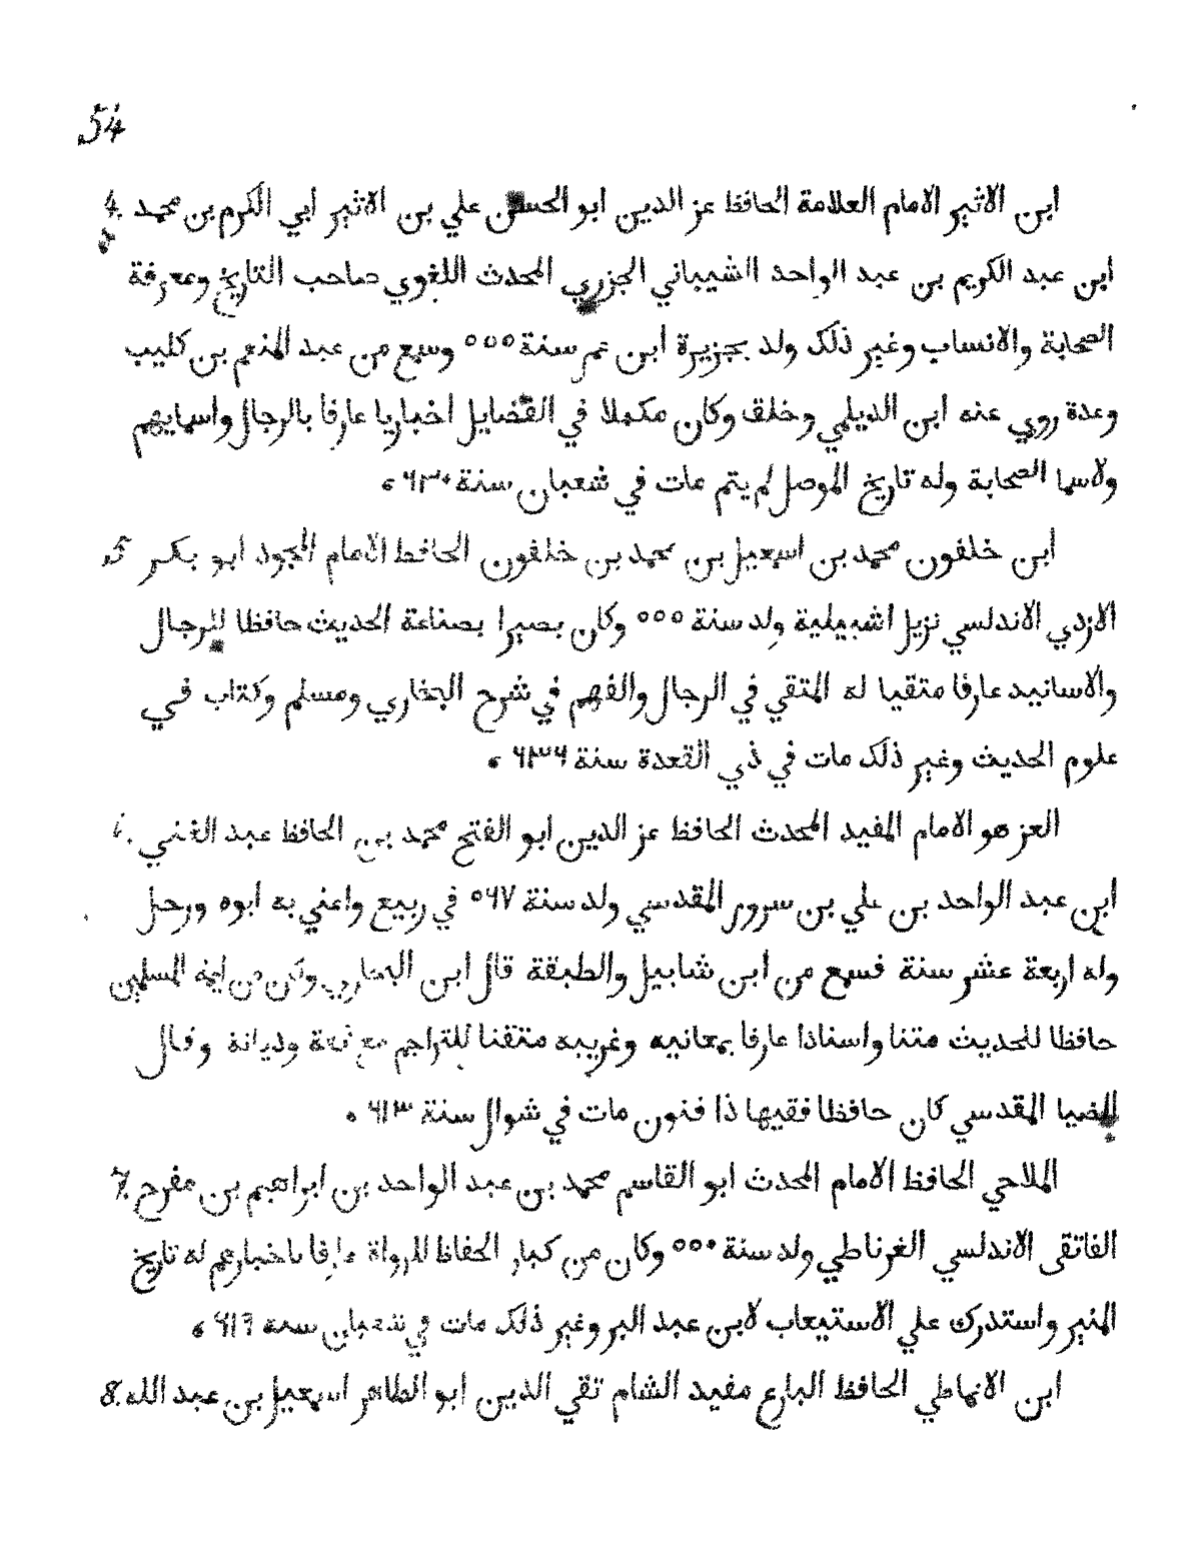 54
ابن الاثير الامام العلامة الحافظ عز الدين ابو الحسن علي بن الاثير ابي الكرم بن محمد 4.
ابن عبد الكريم بن عبد الواحد الشيباني الجزري المحدث اللغوي صاحب التاريخ ومعرفة
الصحابة والانساب وغير ذلك ولد بجزيرة ابن عمر سنة ٥٥٥ وسمع من عبد المنعم بن كليب
وعدة روي عنه ابن الديلمي وخلق وكان مكملا في الفضايل اخباريا عارفا بالرجال واسمايهم
ولاسما الصحابة وله تاريخ الموصل لم يتم مات في شعبان سنة ٦٣٠ ه
ابن خلفون محمد بن اسمعيل بن محمد بن خلفون الحافظ الامام المجود ابو بكر 5.
الازدي الاندلسي نزيل اشبيلية ولد سنة ٥٥٥ وكان بصيرا بصناعة الحديث حافظا للرجال
والاسانيد عارفا متقيا له المتقي في الرجال والفهم في شرح البخاري ومسلم وكتاب في
علوم الحديث وغير ذلك مات في ذي القعدة سنة ٦٣٦ ه
العز هو الامام المفيد المحدث الحافظ عز الدين ابو الفتح محمد بن الحافظ عبد الغني
ابن عبد الواحد بن علي بن سرور المقدسي ولد سنة ٥٦٧ في ربيع واعني به ابوه ورحل
وله اربعة عشر سنة فسمع من ابن شابيل والطبقة قال ابن من ايمة المسلمين
حافظا للحديث متنا واسنادا عارفا بمعانيه وغريبه متقنا للتراجم مع ثقة وديانة وقال
الضيا المقدسي كان حافظا فقيها ذا فنون مات في شوال سنة ٦١٣ ه
الملاحي الحافظ الامام المحدث ابو القاسم محمد بن عبد الواحد بن ابراهيم بن مفرح 7.
الفاتقى الاندلسي الغرناطي ولد سنة ٥٥٠ وكان من كبار الحفاظ للرواة عارفا باخبارهم له تاريخ
المنير واستدرك علي الاستيعاب لابن عبد البر وغير ذلك مات في شعبان سنة ٦١٦ ه
ابن الانماطي الحافظ البارع مفيد الشام تقي الدين ابو الطاهر اسمعيل بن عبد الله 8.